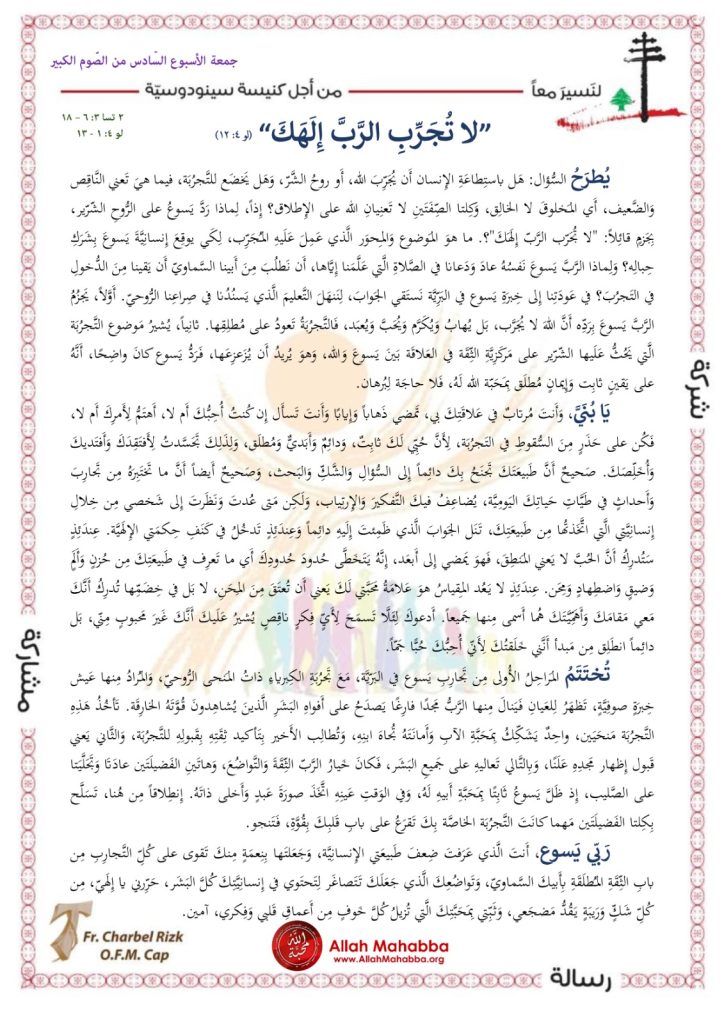 جمعة الأسبوع السّادس من الصّوم الكبير
لنَسيرَ معاً
من أجل كنيسة سينودوسيّة
٢ تسا ٣: ٦ – ١٨
لو ٤: ١ - ١٣
"لا تُجَرِّبِ الرَّبَّ إِلَهَكَ" (لو ٤: ١٢)
يُطرَحُ السُّؤال: هَل باستِطاعَةِ الإنسان أَن يُجَرِّبَ الله، أَو روحُ الشَّرّ، وَهَل يَخضَع للتَّجرُبَة، فيما هيَ تَعني النَّاقِص
وَالضَّعيف، أَي المَخلوقَ لا الخالِق، وَكِلتا الصِّفَتَينِ لا تَعنِيانِ الله على الإطلاق؟ إذاً، لِماذا رَدَّ يَسوعُ على الرُّوحِ الشّرّير،
بِجَزمٍ قائِلاً: "لا تُجَرِّب الرَّبّ إِلَهَكَ"؟. ما هوَ المَوضوع وَالمِحوَر الَّذي عَمِلَ عَلَيهِ المُجَرِّب، لِكَي يوقِعَ إنسانِيَّةَ يَسوعَ بِشَرَكِ
حِبالِه؟ وَلِماذا الرَّبّ يَسوعَ نَفسُهُ عادَ وَدَعانا في الصَّلاةِ الَّتي عَلَّمَنا إيَّاها، أَن نَطلُبَ مِن أَبينا السَّماويّ أَن يَقينا مِنَ الدُّخولِ
في التَّجرُبَ؟ في عَودَتِنا إلى خِبرَةِ يَسوع في البَرِّيَّة نَستَقي الجَوابَ، لِنَنهَلَ التَّعليمَ الَّذي يَسنُدُنا في صِراعِنا الرُّوحيّ. أَوَّلاً، يَجزُمُ
الرَّبُّ يَسوعَ بِرَدِّهِ أَنَّ اللهَ لا يُجَرَّب، بَل يُهابُ وَيُكَرَّم وَيُحَبّ وَيُعبَد، فالتَّجرُبَةُ تَعودُ على مُطلِقِها. ثانياً، يُشيرُ مَوضوع التَّجرُبَة
الَّتي يَحُثُّ عَلَيها الشّرّير على مَركَزِيَّةِ الثِّقَة في العَلاقَة بَينَ يَسوعَ وَالله، وَهوَ يُريدُ أَن يُزَعزِعَها، فَرَدُّ يَسوع كانَ واضِحًا، أَنَّهُ
على يَقينٍ ثابِت وَإيمانٍ مُطلَق بِمَحَبَّة الله لَهُ، فَلا حاجَة لِبُرهان.
يَا بُنَيَّ، وَأَنتَ مُرتابٌ في عَلاقَتِكَ بي، تَمضي ذَهاباً وَإيابًا وَأَنتَ تَسأَل إِن كُنتُ أُحِبُّكَ أَم لا، أَهتَمُّ لِأَمرِكَ أَم لا،
فَكُن على حَذَرٍ مِنَ السُّقوطِ في التَّجرُبَة، لِأَنَّ حُبّي لَكَ ثابِتٌ، وَدائِمٌ وَأَبَديٌّ وَمُطلَق، وَلِذَلِكَ تَجَسَّدتُ لِأَفتَقِدَكَ وَأَفتَديكَ
وَأُخَلِّصَكَ. صَحيحٌ أَنَّ طَبيعَتَكَ تَجنَحُ بِكَ دائِماً إلى السُّؤالِ وَالشَّكِّ وَالبَحث، وَصَحيحٌ أَيضاً أَنَّ ما تَختَبِرُهُ مِن تَجارِبَ
وَأَحداثٍ في طَيَّاتِ حَياتِكَ اليَومِيَّة، يُضاعِفُ فيكَ التَّفكير وَالإرتِياب، وَلَكِن مَتى عُدتَ وَنَظَرتَ إلى شَخصي مِن خِلالِ
إنسانِيَّتي الَّتي اتَّخَذتُها مِن طَبيعَتِكَ، تَنَل الجَوابَ الَّذي ظَمِئتَ إلَيهِ دائماً وَعِندَئِذٍ تَدخُلُ في كَنَفِ حِكمَتي الإلَهِيَّة. عِندَئِذٍ
سَتُدرِكُ أَنَّ الحُبَّ لا يَعني المَنطِقَ، فَهوَ يَمضي إلى أَبعَد، إنَّهُ يَتَخَطَّى حُدودَ حُدودِكَ أَي ما تَعرِف في طَبيعَتِكَ مِن حُزنٍ وَأَلَمٍ
وَضيقٍ وَاضطِهادٍ وَمِحَن. عِندَئِذٍ لا يَعُد المِقياسُ هوَ عَلامَةُ مَحَبَّتي لَكَ يَعني أَن تُعتَقَ مِنَ المِحَنِ، لا بَل في خِضَمِّها تُدرِكُ أَنَّكَ
مَعي مَقامَكَ وَأَهَمِّيَّتَكَ هُما أَسمى مِنها جَميعاً. أَدعوكَ لِئَلّا تَسمَحَ لِأَيِّ فِكرٍ ناقِصٍ يُشيرُ عَلَيكَ أَنَّكَ غَيرَ مَحبوبٍ مِنّي، بَل
دائماً انطَلِق مِن مَبدَأ أَنَّني خَلَقتُكَ لِأَنّي أُحِبُّكَ حُبًّا جَمّاً.
تُختَتَمُ المَراحِلُ الأُولى مِن تَجارِبِ يَسوع في البَرِّيَّة، مَعَ تَجرُبَةِ الكِبرياءِ ذاتُ المَنحى الرُّوحيّ، وَالمُرادُ مِنها عَيش
خِبرَةٍ صوفِيَّةٍ، تَظهَرُ لِلعَيانِ فَيَنالَ مِنها الرَّبُّ مَجدًا فارِغًا يَصدَحُ على أَفواهِ البَشَر الَّذينَ يُشاهِدونَ قُوَّتَهُ الخارِقَة. تَأخُذُ هَذِهِ
التَّجرُبَة مَنحَيَين، واحِدٌ يَشَكِّكُ بِمَحَبَّةِ الآبِ وَأَمانَتَهُ تُجاهَ ابنِهِ، وَتُطالِب الأَخير بِتَأكيد ثِقَتِه بِقَبولِهِ للتَّجرُبَة، وَالثَّاني يَعني
قَبول إظهارِ مَجدِهِ عَلَنًا، وَبِالتَّالي تَعالِيهِ على جَميعِ البَشَر، فَكانَ خَيارُ الرَّبّ الثِّقَةَ وَالتَّواضُعَ، وَهاتَينِ الفَضيلَتَين عادَتَا وَتَجَلَّيَتا
على الصَّليب، إذ ظَلَّ يَسوعُ ثابِتًا بِمَحَبَّةِ أَبيهِ لَهُ، وَفي الوَقتِ عَينِهِ اتَّخَذَ صورَةَ عَبدٍ وَأَخلى ذاتَهُ. إنطِلاقاً مِن هُنا، تَسَلَّح
بِكِلتا الفَضيلَتَين، مَهما كانَت التَّجرُبَة الخاصَّة بِكَ تَقرَعُ على بابِ قَلبِكَ بِقُوَّةٍ، فَتَنجو.
رَبّي يَسوع، أَنتَ الَّذي عَرَفتَ ضِعفَ طَبيعَتي الإنسانِيَّة، وَجَعَلتَها بِنِعمَةٍ مِنكَ تَقوى على كُلِّ التَّجارِبِ مِن
بابِ الثِّقَةِ المُطلَقَةِ بِأَبيكَ السَّماويّ، وَتَواضُعِكَ الَّذي جَعَلَكَ تَتَصاغَر لِتَحتَوي في إنسانِيَّتِكَ كُلَّ البَشَر، حَرِّرني يا إلَهيّ، مِن
كُلِّ شَكٍّ وَرَيبَةٍ يَقُضُّ مَضجَعي، وَثَبِّتني بِمَحَبَّتِكَ الَّتي تُزيلُ كُلَّ خَوفٍ مِن أَعماقِ قَلبي وَفِكري، آمين.
شركة
مشاركة
رسالة
Fr. Charbel Rizk
O.F.M. Cap
الله محبة
Allah Mahabba
www.AllahMahabba.org